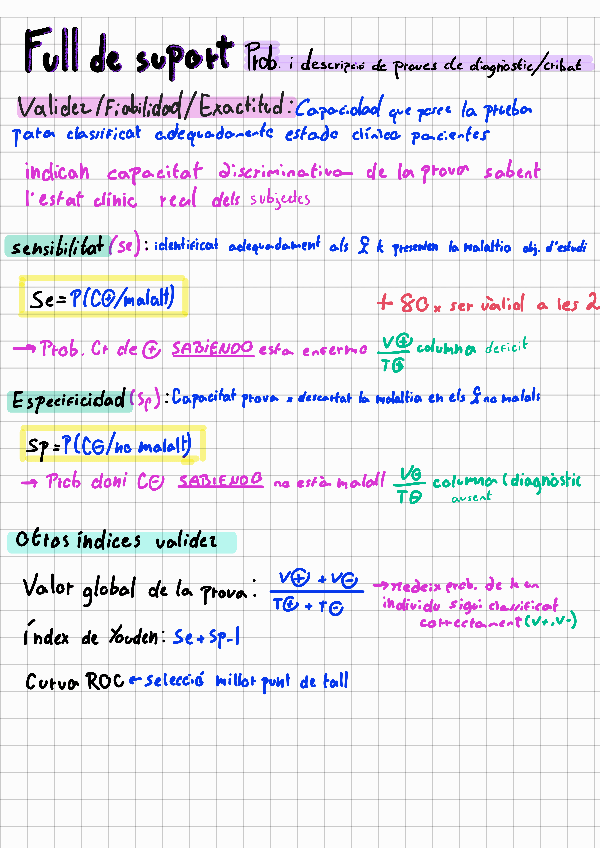 Full de suport Prob. i descripció de proves de diagnòstic/cribat
Validez/Fiabilidad/Exactitud: Capacidad que posee la prueba
para classificat adequadamente estado clínico pacientes
indican capacitat discriminativa de la prova sabent
l'estat clínic real dels subjectes
sensibilitat (se): identificat adequadament als k presenten la malaltia obj. d'estudi
Se = P(C⊕/malalt)
+ 80 x ser vàlid a les 2
→ Prob. Cr de ⊕ SABIENDO esta enfermo V⊕/T⊕ columna deficit
Especificidad (Sp): Capacitat prova x descartat la malaltia en els no malals
Sp = P(C⊖/no malalt)
→ Prob doni C⊖ SABIENDO no està malalt V⊖/T⊖ columna (diagnòstic
ausent
Otros índices validez
Valor global de la prova: V⊕ + V⊖ / T⊕ + T⊖ → medeix prob. de k un
individu sigui classificat
correctament (V+,V-)
Índex de Youden: Se + Sp - 1
Curva ROC ← selecció millor punt de tall